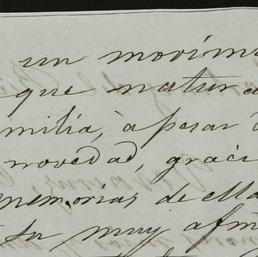 un movim
que natur
milia, à pesar
novedad, graci
memorias de Ma
su muy afm